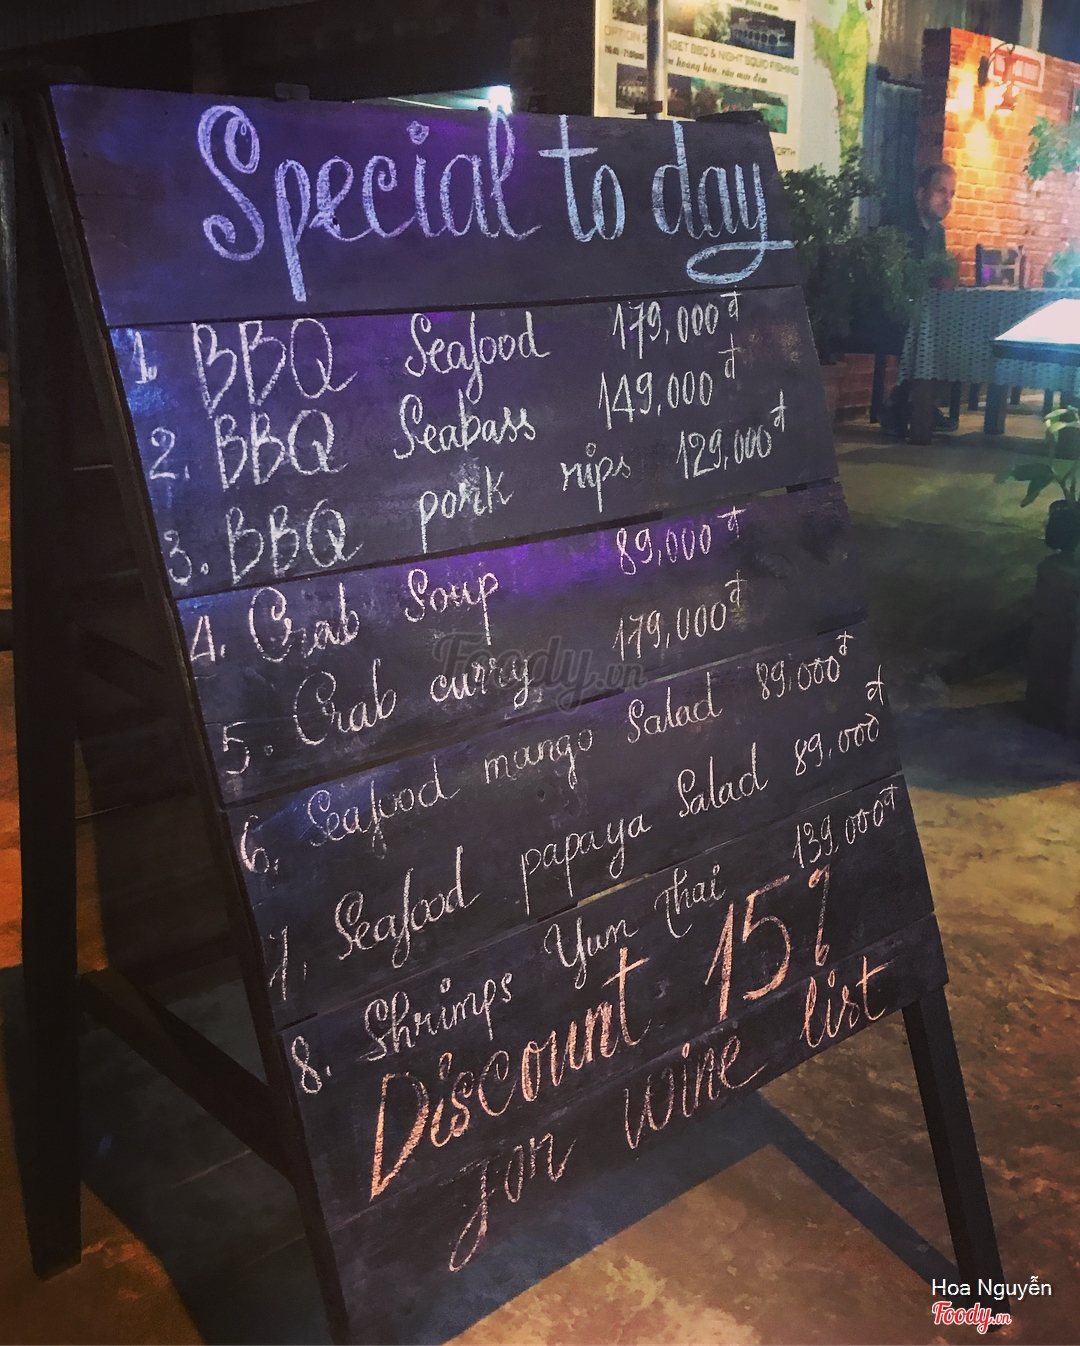 OPTION 2
SET BBQ & NIGHT SQUID FISHING
hoàng hôn, câu mực đêm
Special to day
1 BBQ Seafood 179,000đ
2. BBQ Seabass 149,000đ
3. BBQ pork rips 129,000đ
4. Crab Soup 89,000đ
5. Crab curry 179,000đ
6. Seafood mango Salad 89,000đ
7, Seafood papaya Salad 89,000đ
8. Shrimps Yum thai 139,000đ
Discount 15%
for wine list
Foody.vn
Hoa Nguyễn
Foody.vn